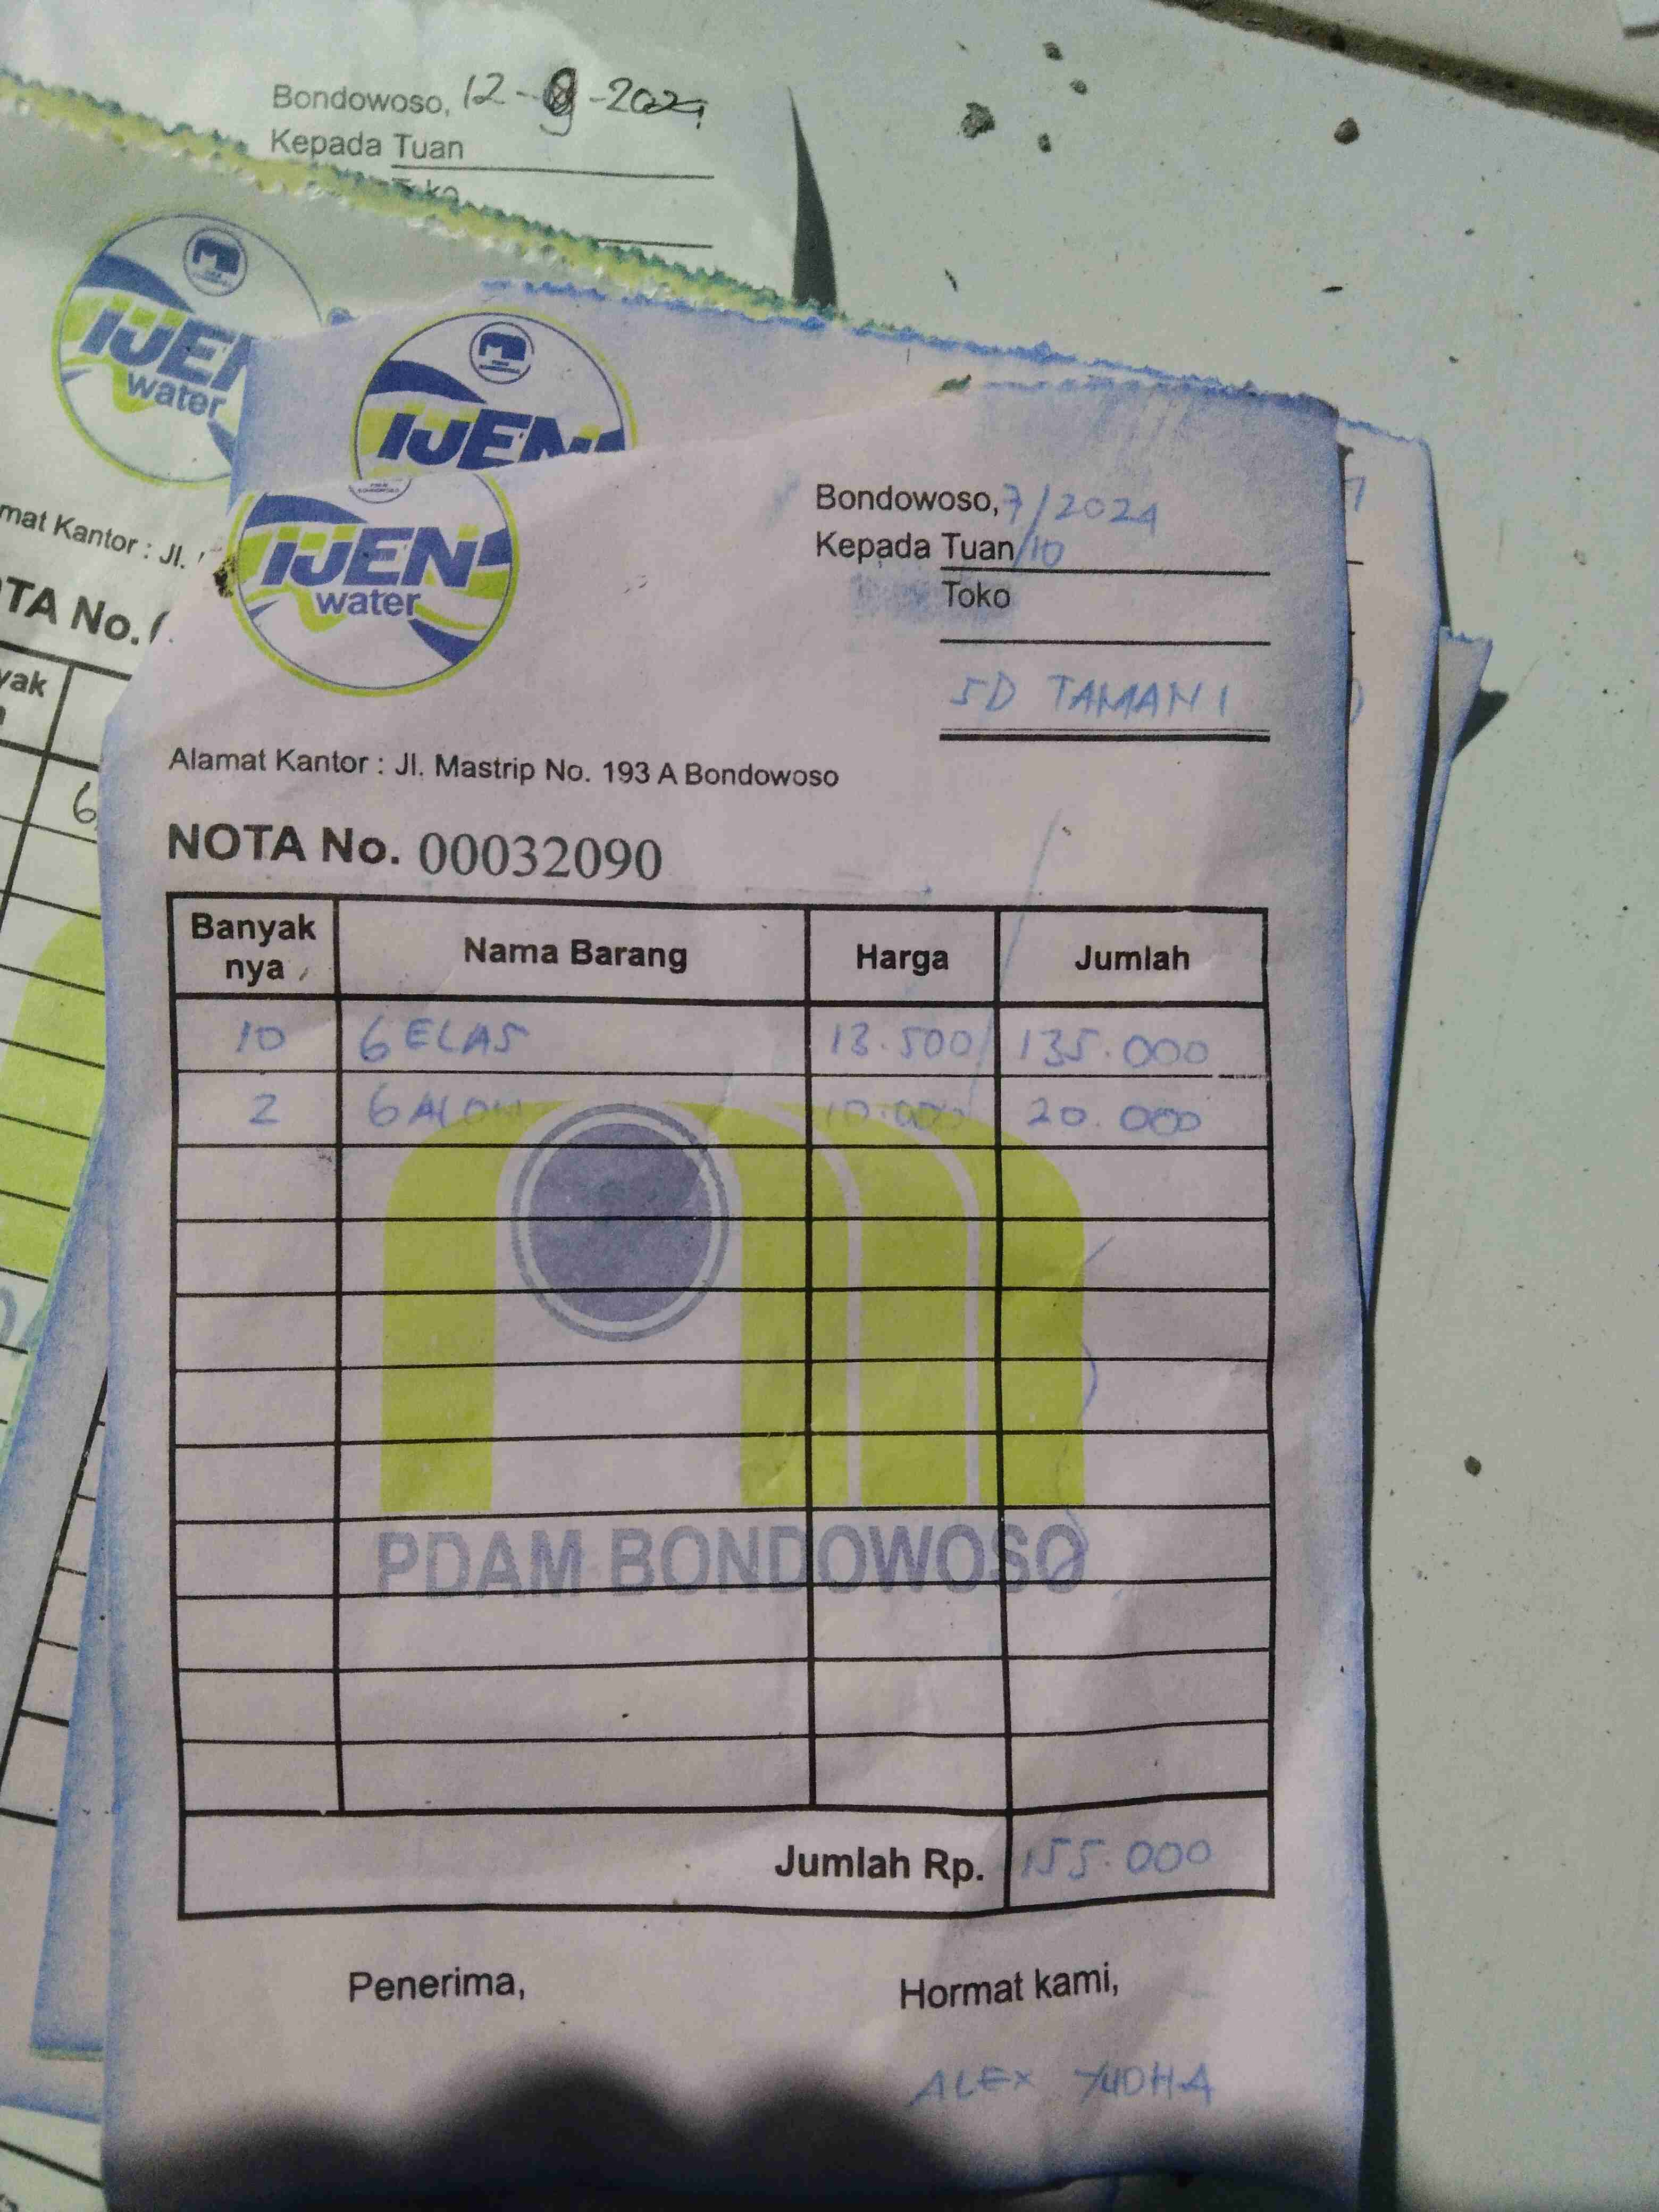 Bondowoso, 12-9-2024
Kepada Tuan
IJEN
water
IJEN
mat Kantor : Jl.
TA No.
yak
6
IJEN
water
Bondowoso, 7/2024
Kepada Tuan /10
Toko
SD TAMAN 1
Alamat Kantor : Jl. Mastrip No. 193 A Bondowoso
NOTA No. 00032090
Banyak nya Nama Barang Harga Jumlah
10 GELAS 13.500 135.000
2 GALON 10.000 20.000
PDAM BONDOWOSO
Jumlah Rp. 155.000
Penerima, Hormat kami,
ALEX YUDHA